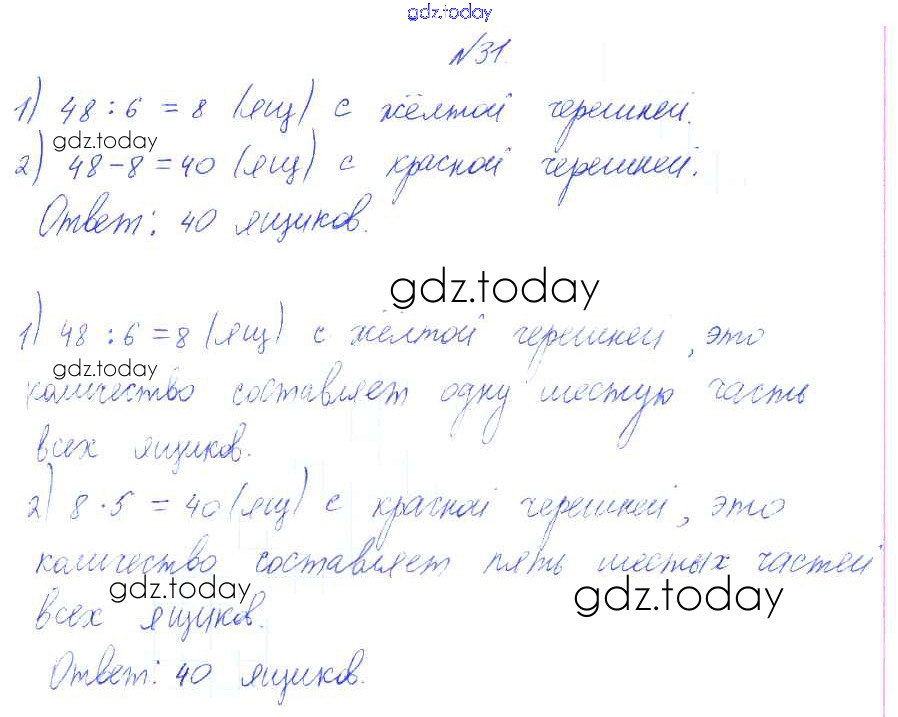 gdz.today
№31.
1) 48 : 6 = 8 (ящ) с жёлтой черешней.
gdz.today
2) 48 - 8 = 40 (ящ) с красной черешней.
Ответ: 40 ящиков.
gdz.today
1) 48 : 6 = 8 (ящ) с жёлтой черешней, это
gdz.today
количество составляет одну шестую часть
всех ящиков.
2) 8 · 5 = 40 (ящ) с красной черешней, это
количество составляет пять шестых частей
gdz.today
gdz.today
всех ящиков.
Ответ: 40 ящиков.